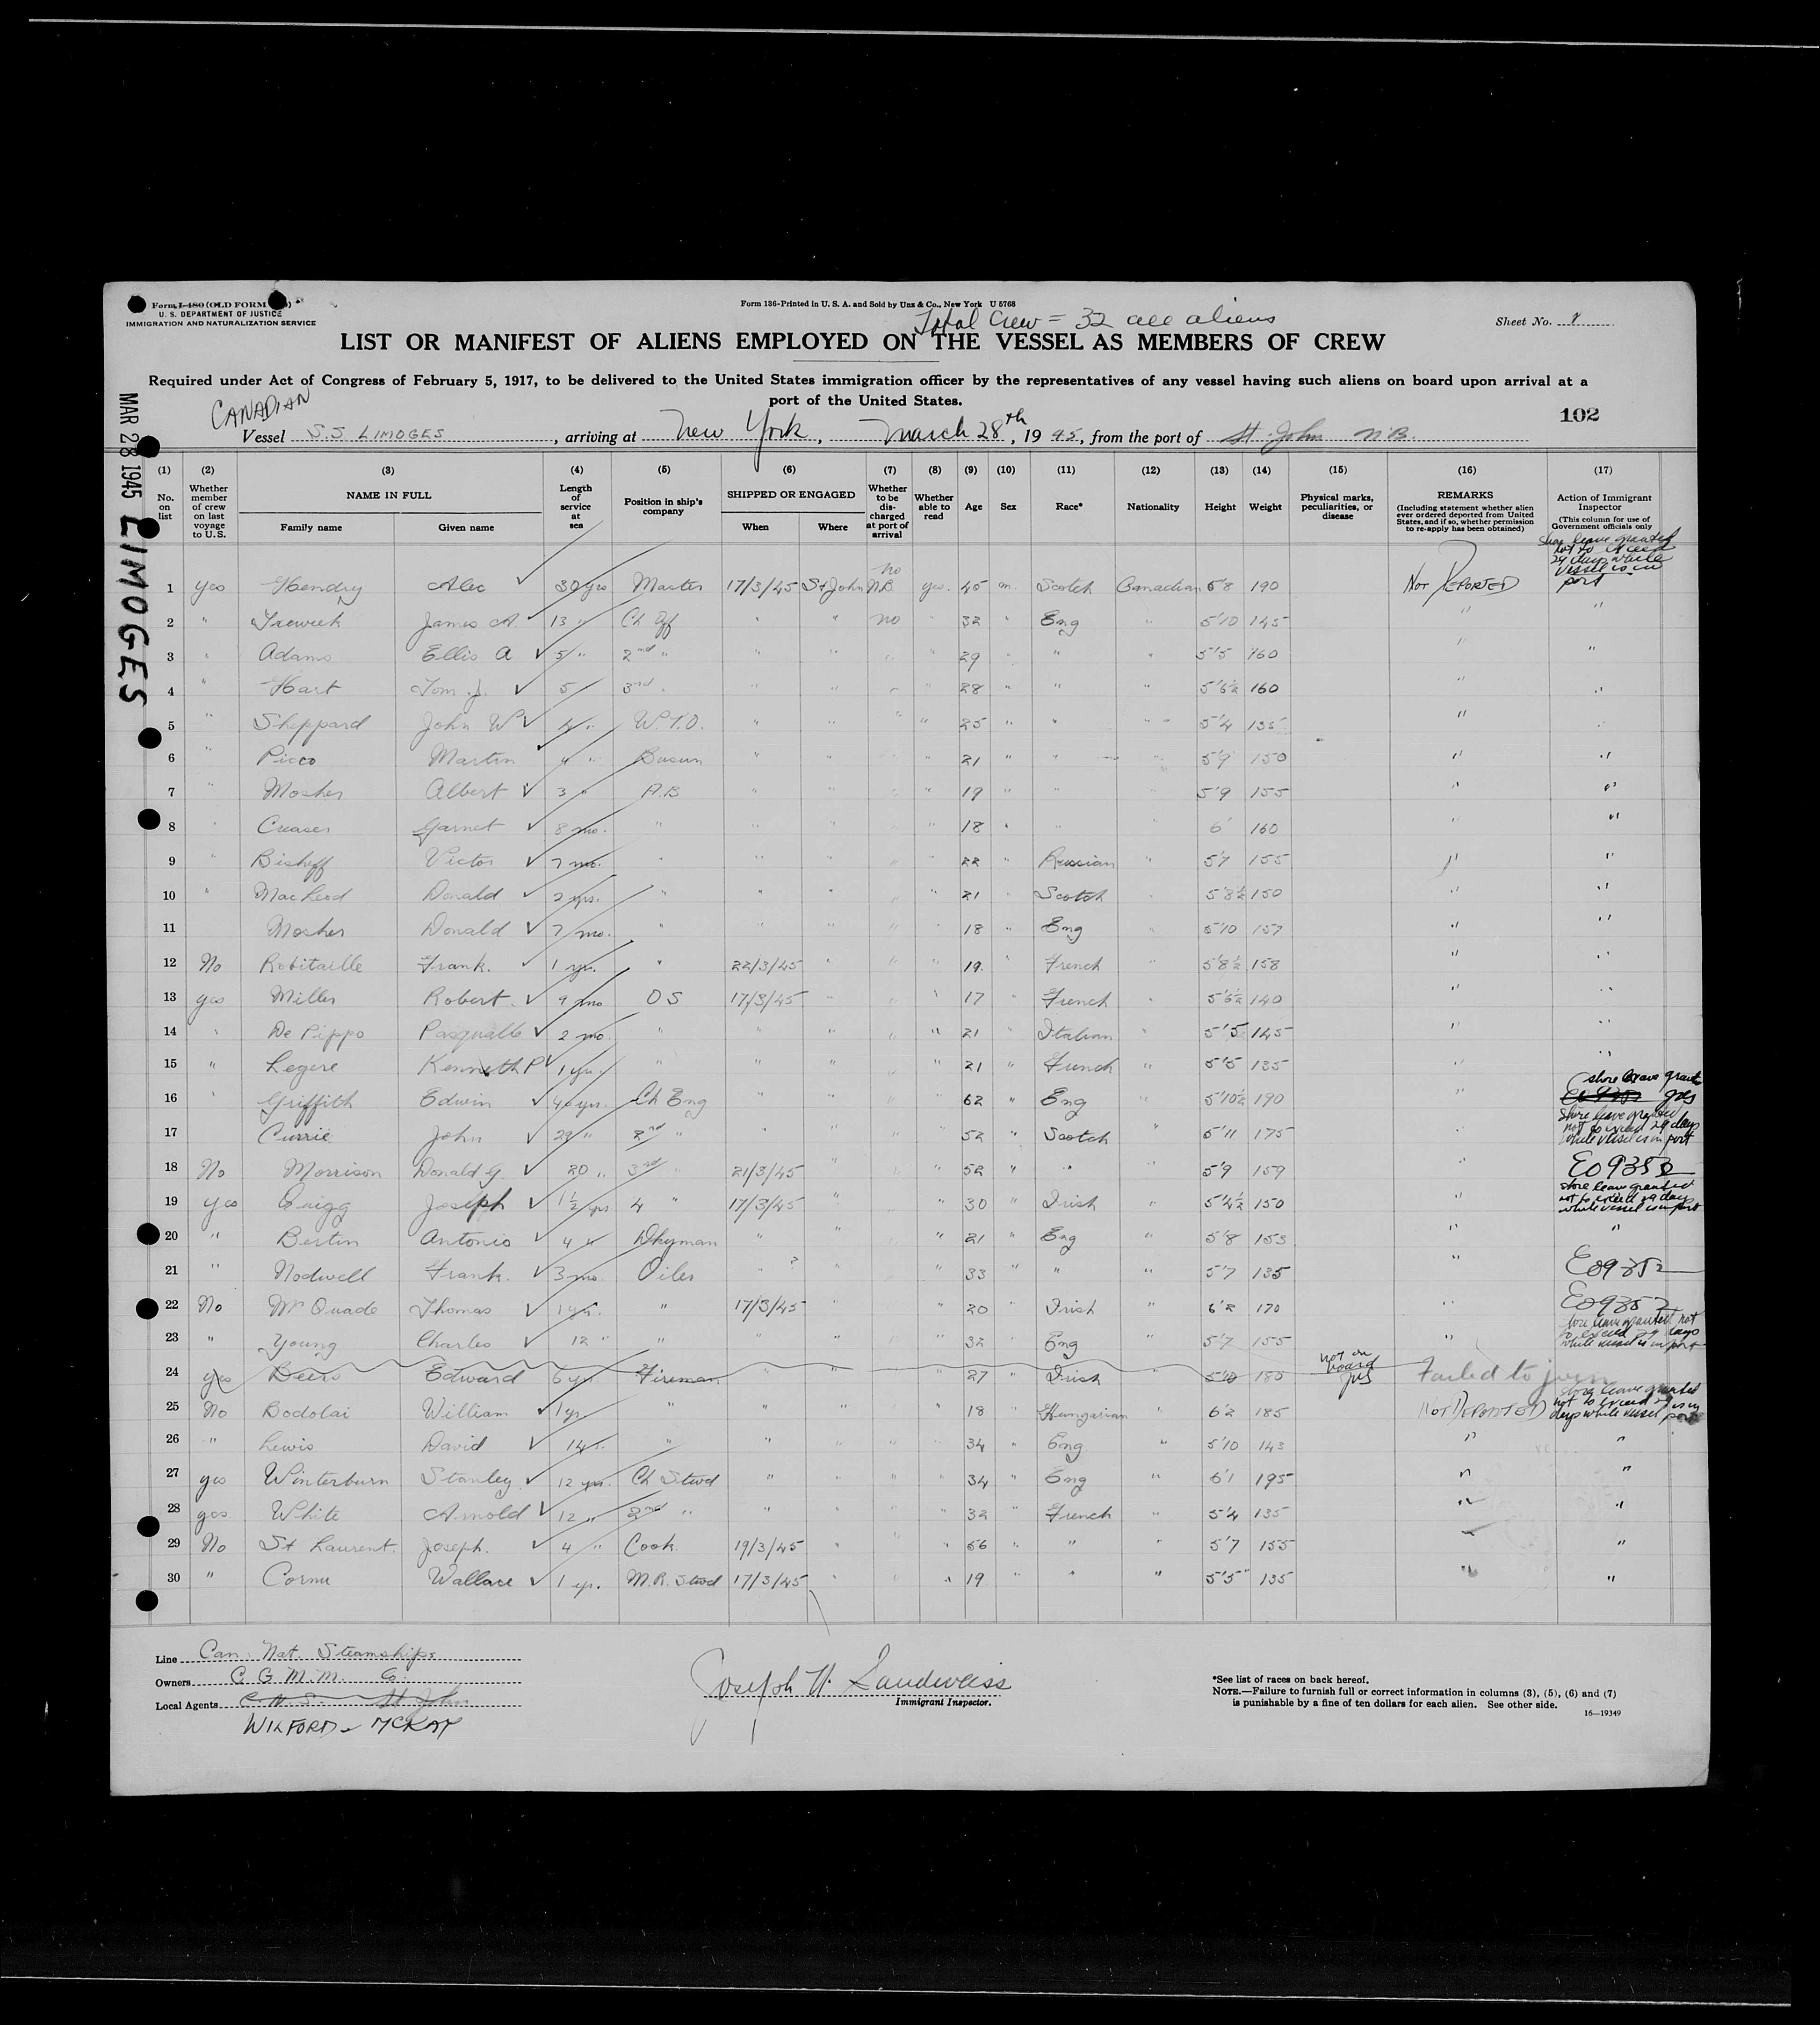 Form I-480 (OLD FORM
U. S. DEPARTMENT OF JUSTICE
IMMIGRATION AND NATURALIZATION SERVICE
Form 136-Printed in U. S. A. and Sold by Unz & Co., New York U 5768
Total Crew = 32 all aliens
Sheet No.
LIST OR MANIFEST OF ALIENS EMPLOYED ON THE VESSEL AS MEMBERS OF CREW
Required under Act of Congress of February 5, 1917, to be delivered to the United States immigration officer by the representatives of any vessel having such aliens on board upon arrival at a
port of the United States.
102
CANADIAN
Vessel S.S LIMOGES, arriving at New York, March 28th, 1945, from the port of St. John N.B.
MAR 28 1945 LIMOGES
(1) (2) (3) (4) (5) (6) (7) (8) (9) (10) (11) (12) (13) (14) (15) (16) (17)
No. on list
Whether member of crew on last voyage to U.S.
NAME IN FULL
Family name Given name
Length of service at sea
Position in ship's company
SHIPPED OR ENGAGED
When Where
Whether to be discharged at port of arrival
Whether able to read
Age Sex Race* Nationality Height Weight
Physical marks, peculiarities, or disease
REMARKS
(Including statement whether alien ever ordered deported from United States, and if so, whether permission to re-apply has been obtained)
Action of Immigrant Inspector
(This column for use of Government officials only
Shore leave granted not to exceed 29 days while vessel is in port
1 yes Hendry Alec 30 yrs Master 17/3/45 St John N.B. no yes. 45 m. Scotch Canadian 5'8 190 Not Deported
2 " Trewick James A. 13 " Ch Off " " no " 32 " Eng " 5'10 145 " "
3 " Adams Ellis A 5 " 2nd " " " " " 29 " " " 5'5 160 " "
4 " Hart Tom J. 5 3rd " " " " " 28 " " " 5'6½ 160 " "
5 " Sheppard John W 4 " W.T.O. " " " " 25 " " " 5'4 135 " "
6 " Picco Martin 4 " Bosun " " " " 21 " " " 5'9 150 " "
7 " Mosher Albert 3 " A.B " " " " 19 " " " 5'9 155 " "
8 " Creaser Garnet 8 mo. " " " " " 18 " " " 6' 160 " "
9 " Bishoff Victor 7 mo. " " " " " 22 " Russian " 5'7 155 " "
10 " MacLeod Donald 2 yrs. " " " " " 21 " Scotch " 5'8½ 150 " "
11 Mosher Donald 7 mo. " " " " " 18 " Eng " 5'10 157 " "
12 No Robitaille Frank. 1 yr. " 22/3/45 " " " 19. " French " 5'8½ 158 " "
13 yes Miller Robert. 9 mo O S 17/3/45 " " " 17 " French " 5'6½ 140 " "
14 " De Pippo Pasqualle 2 mo. " " " " " 21 " Italian " 5'5 145 " "
15 " Legere Kenneth P 1 yr. " " " " " 21 " French " 5'5 135 " "
16 " Griffith Edwin 40 yrs. Ch Eng " " " " 62 " Eng " 5'10½ 190 " shore leave granted
17 " Currie John 29 " 2nd " " " " " 52 " Scotch " 5'11 175 " Shore leave granted not to exceed 29 days while vessel is in port
18 No Morrison Donald G 20 " 3rd " 21/3/45 " " " 52 " " " 5'9 159 " EO9352
19 yes Quigg Joseph 1½ yrs 4 " 17/3/45 " " " 30 " Irish " 5'4½ 150 " shore leave granted not to exceed 29 days while vessel is in port
20 " Bertin Antonio 4 " Dkyman " " " " 21 " Eng " 5'8 153 " "
21 " Nodwell Frank. 3 mo. Oiler " ? " " 33 " " " 5'7 135 " EO9352
22 No McQuade Thomas 1 yr. " 17/3/45 " " " 20 " Irish " 6'2 170 " EO9352
23 " Young Charles 12 " " " " " " 32 " Eng " 5'7 155 " shore leave granted not to exceed 29 days while vessel is in port
24 yes Beers Edward 6 yr. Fireman " " " " 27 " Irish 5'10 180 not on board Failed to join
25 No Bodolai William 1 yr. " " " " " 18 " Hungarian " 6'2 185 NOT DEPORTED shore leave granted not to exceed 29 days while vessel is in port
26 " Lewis David 14 " " " " " " 34 " Eng " 5'10 143 " "
27 yes Winterburn Stanley 12 yrs. Ch Stwd " " " " 34 " Eng " 6'1 195 " "
28 yes White Arnold 12 " 2nd " " " " " 32 " French " 5'4 135 " "
29 No St Laurent. Joseph. 4 " Cook. 19/3/45 " " " 56 " " " 5'7 155 " "
30 " Cormu Wallace 1 yr. M.R. Stwd 17/3/45 " " " 19 " " " 5'5" 135 " "
Line Can. Nat. Steamships
Owners C G M.M. Co.
Local Agents C N S. St John
WILFORD & MCKAY
Joseph H. Sandweiss
Immigrant Inspector.
*See list of races on back hereof.
NOTE.—Failure to furnish full or correct information in columns (3), (5), (6) and (7)
is punishable by a fine of ten dollars for each alien. See other side.
16—19349